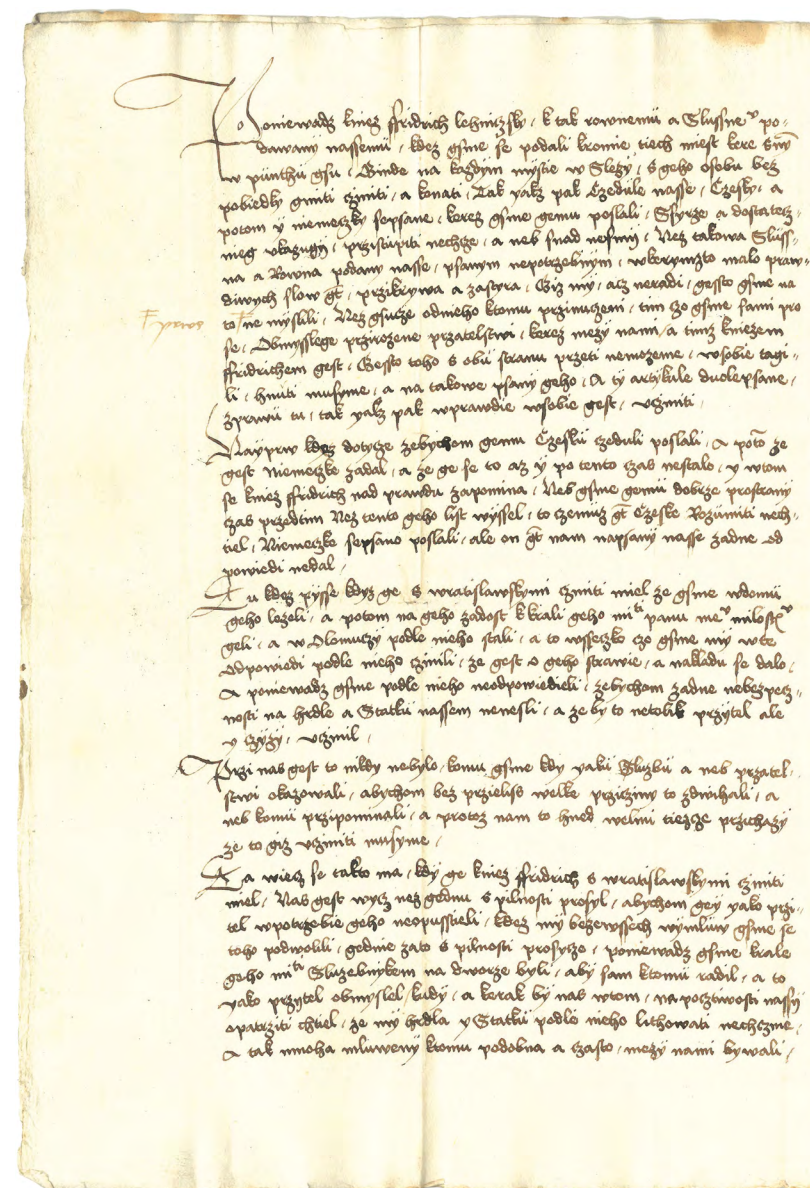 Poniewadz kniez ffridrich lehniczsky, k tak rownemu a Slussne° po-
dawany nassemu, kdez gsme se podali kromie tiech miest kere
w punthu gsu, Ginde na kazdym mystie w Slezy, s geho osobu bez
pobiedky giniti czniti, a konati, Tak yakz pak Czedule nasse, Czesky, a
potom y niemeczky sepsane, kerez gsme gemu poslali, Sstyrze a dostatecz-
nieg ukazugy, przistupiti nechcze, a neb snad nesmy, Nez takowa Sluss-
na a Rowna podany nasse, psanym nepotrzebnym, wkerymzto malo praw-
diwych slow gt, przikrywa a zastyra, Giz my, acz neradi, gessto gsme na
to ne myslili, Nez gsucze odnieho ktomu przinuczeni, tim czo gsme sami pro
se, Obmysslege przirozene przatelstwi, kerez mezy nami, a timz kniezem
ffridrichem gest, Gessto toho s obu stranu przeti nemozeme, wsobie tagi-
li, hnuti musyme, a na takowe psany geho, A ty artykule dolepsane,
zprawu tu, tak yakz pak wprawdie wsobie gest, uczniti,
Nayprw kdez dotycze zebychom gemu Czesku czeduli poslali, A potom ze
gest Niemeczke zadal, a ze ge se to az y po tento czas nestalo, y wtom
se kniez ffridrich nad prawdu zapomina, Neb gsme gemu dobrze prostrany
czas przedtim Nez tento geho list wyssel, to czemuz gt Czeske Rozumiti nech-
tiel, Niemeczke sepsano poslali, ale on gt nam napsany nasse zadne od
powiedi nedal,
Tu kdez pysse kdyz ge s wratislawskymi czniti miel ze gsme wdomu
geho lezeli, a potom na geho zadost k krali geho miti panu me° milostiw°
geli, a w Olomuczy podle nieho stali, a to wsseczko czo gsme my w te
odpowiedi podle nieho cznili, ze gest o geho strawie, a nakladu se dalo,
A poniewadz gsme podle nieho neodpowiedieli, zebychom zadne nebezpecz-
nosti na hrdle a Statku nassem nenesli, a ze by to netolik przytel ale
y czyzy, ucznil,
Przi nas gest to nikdy nebylo, komu gsme kdy yaku Sluzbu a neb przatel-
stwi okazowali, abychom bez przielis welke przicziny to zdwihali, a
neb komu przipominali, a protoz nam to hned welmi tiezcze przichazy
ze to giz uczniti musyme,
Ta wiecz se takto ma, kdy ge kniez ffridrich s wratislawskymi czniti
miel, Nas gest wycz nez gednu s pilnosti prosyl, abychom gey yako przi-
tel wpotrzebie geho neopusstieli, kdez my bezewssech wymluw gsme se
toho podwolili, gedine zato s pilnosti prosycze, poniewadz gsme krale
geho miti Sluzebnykem na dworze byli, aby sam ktomu radil, a to
yako przytel obmyslel, kudy, a kerak by nas wtom, na pocztiwosti nassy
opatrziti chtiel, ze my hrdla y Statku podle nieho lithowati nechczme,
A tak mnoha mluweny ktomu podobna a czasto, mezy nami bywali,